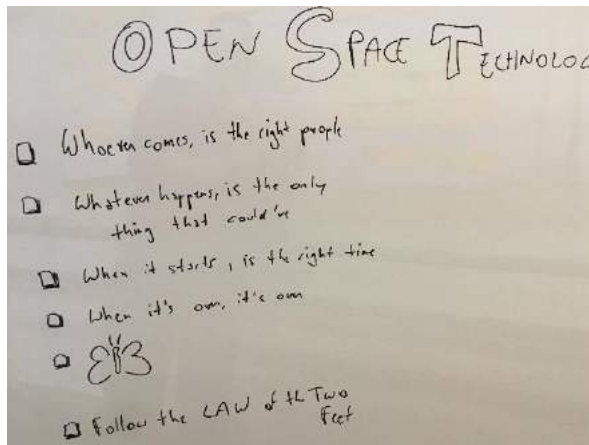 OPEN SPACE TECHNOLOG
Whoever comes, is the right people
Whatever happens, is the only
thing that could've
When it starts, is the right time
When it's over, it's over
Follow the LAW of the Two
Feet